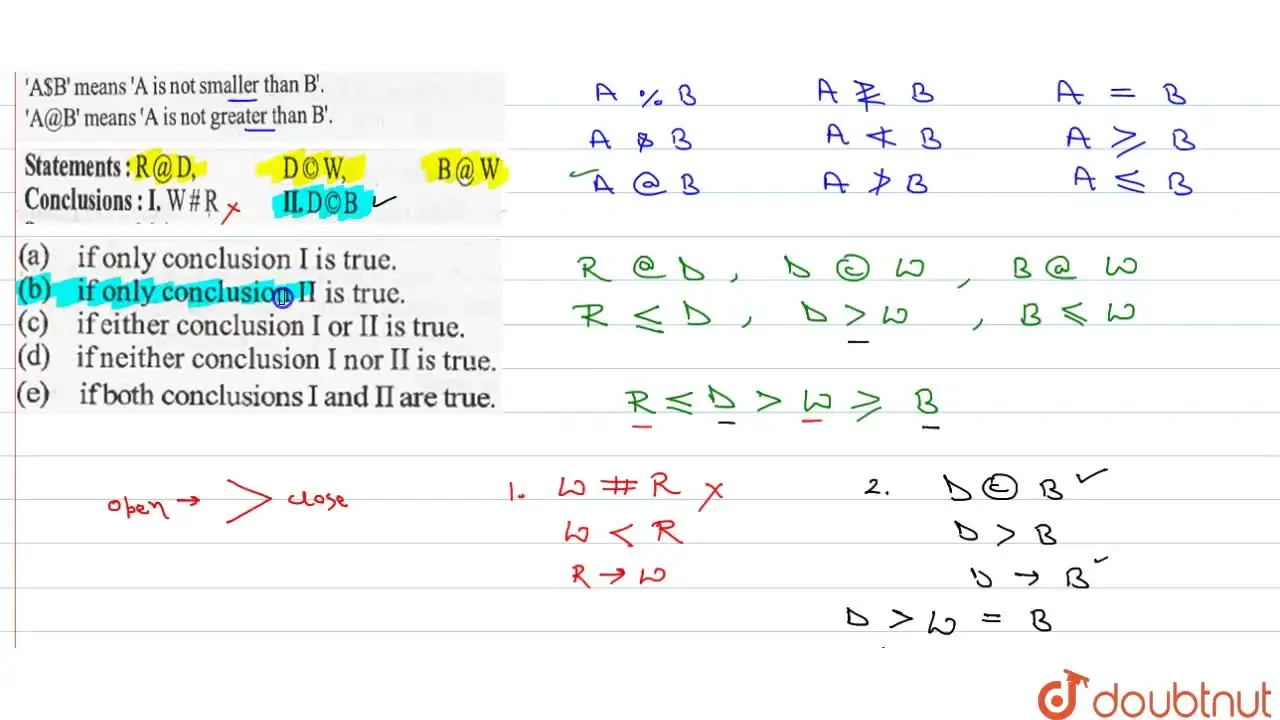 'A$B' means 'A is not smaller than B'.
'A@B' means 'A is not greater than B'.
Statements : R@D, D©W, B@W
Conclusions : I. W#R × II. D©B ✓
(a) if only conclusion I is true.
(b) if only conclusion II is true.
(c) if either conclusion I or II is true.
(d) if neither conclusion I nor II is true.
(e) if both conclusions I and II are true.
A % B A ≹ B A = B
A $ B A ≮ B A ≥ B
✓ A @ B A ≯ B A ≤ B
R @ D , D © W , B @ W
R ≤ D , D > W , B ≤ W
R ≤ D > W ≥ B
open → > close
1. W # R ×
W < R
R → W
2. D © B ✓
D > B
D → B ✓
D > W = B
doubtnut